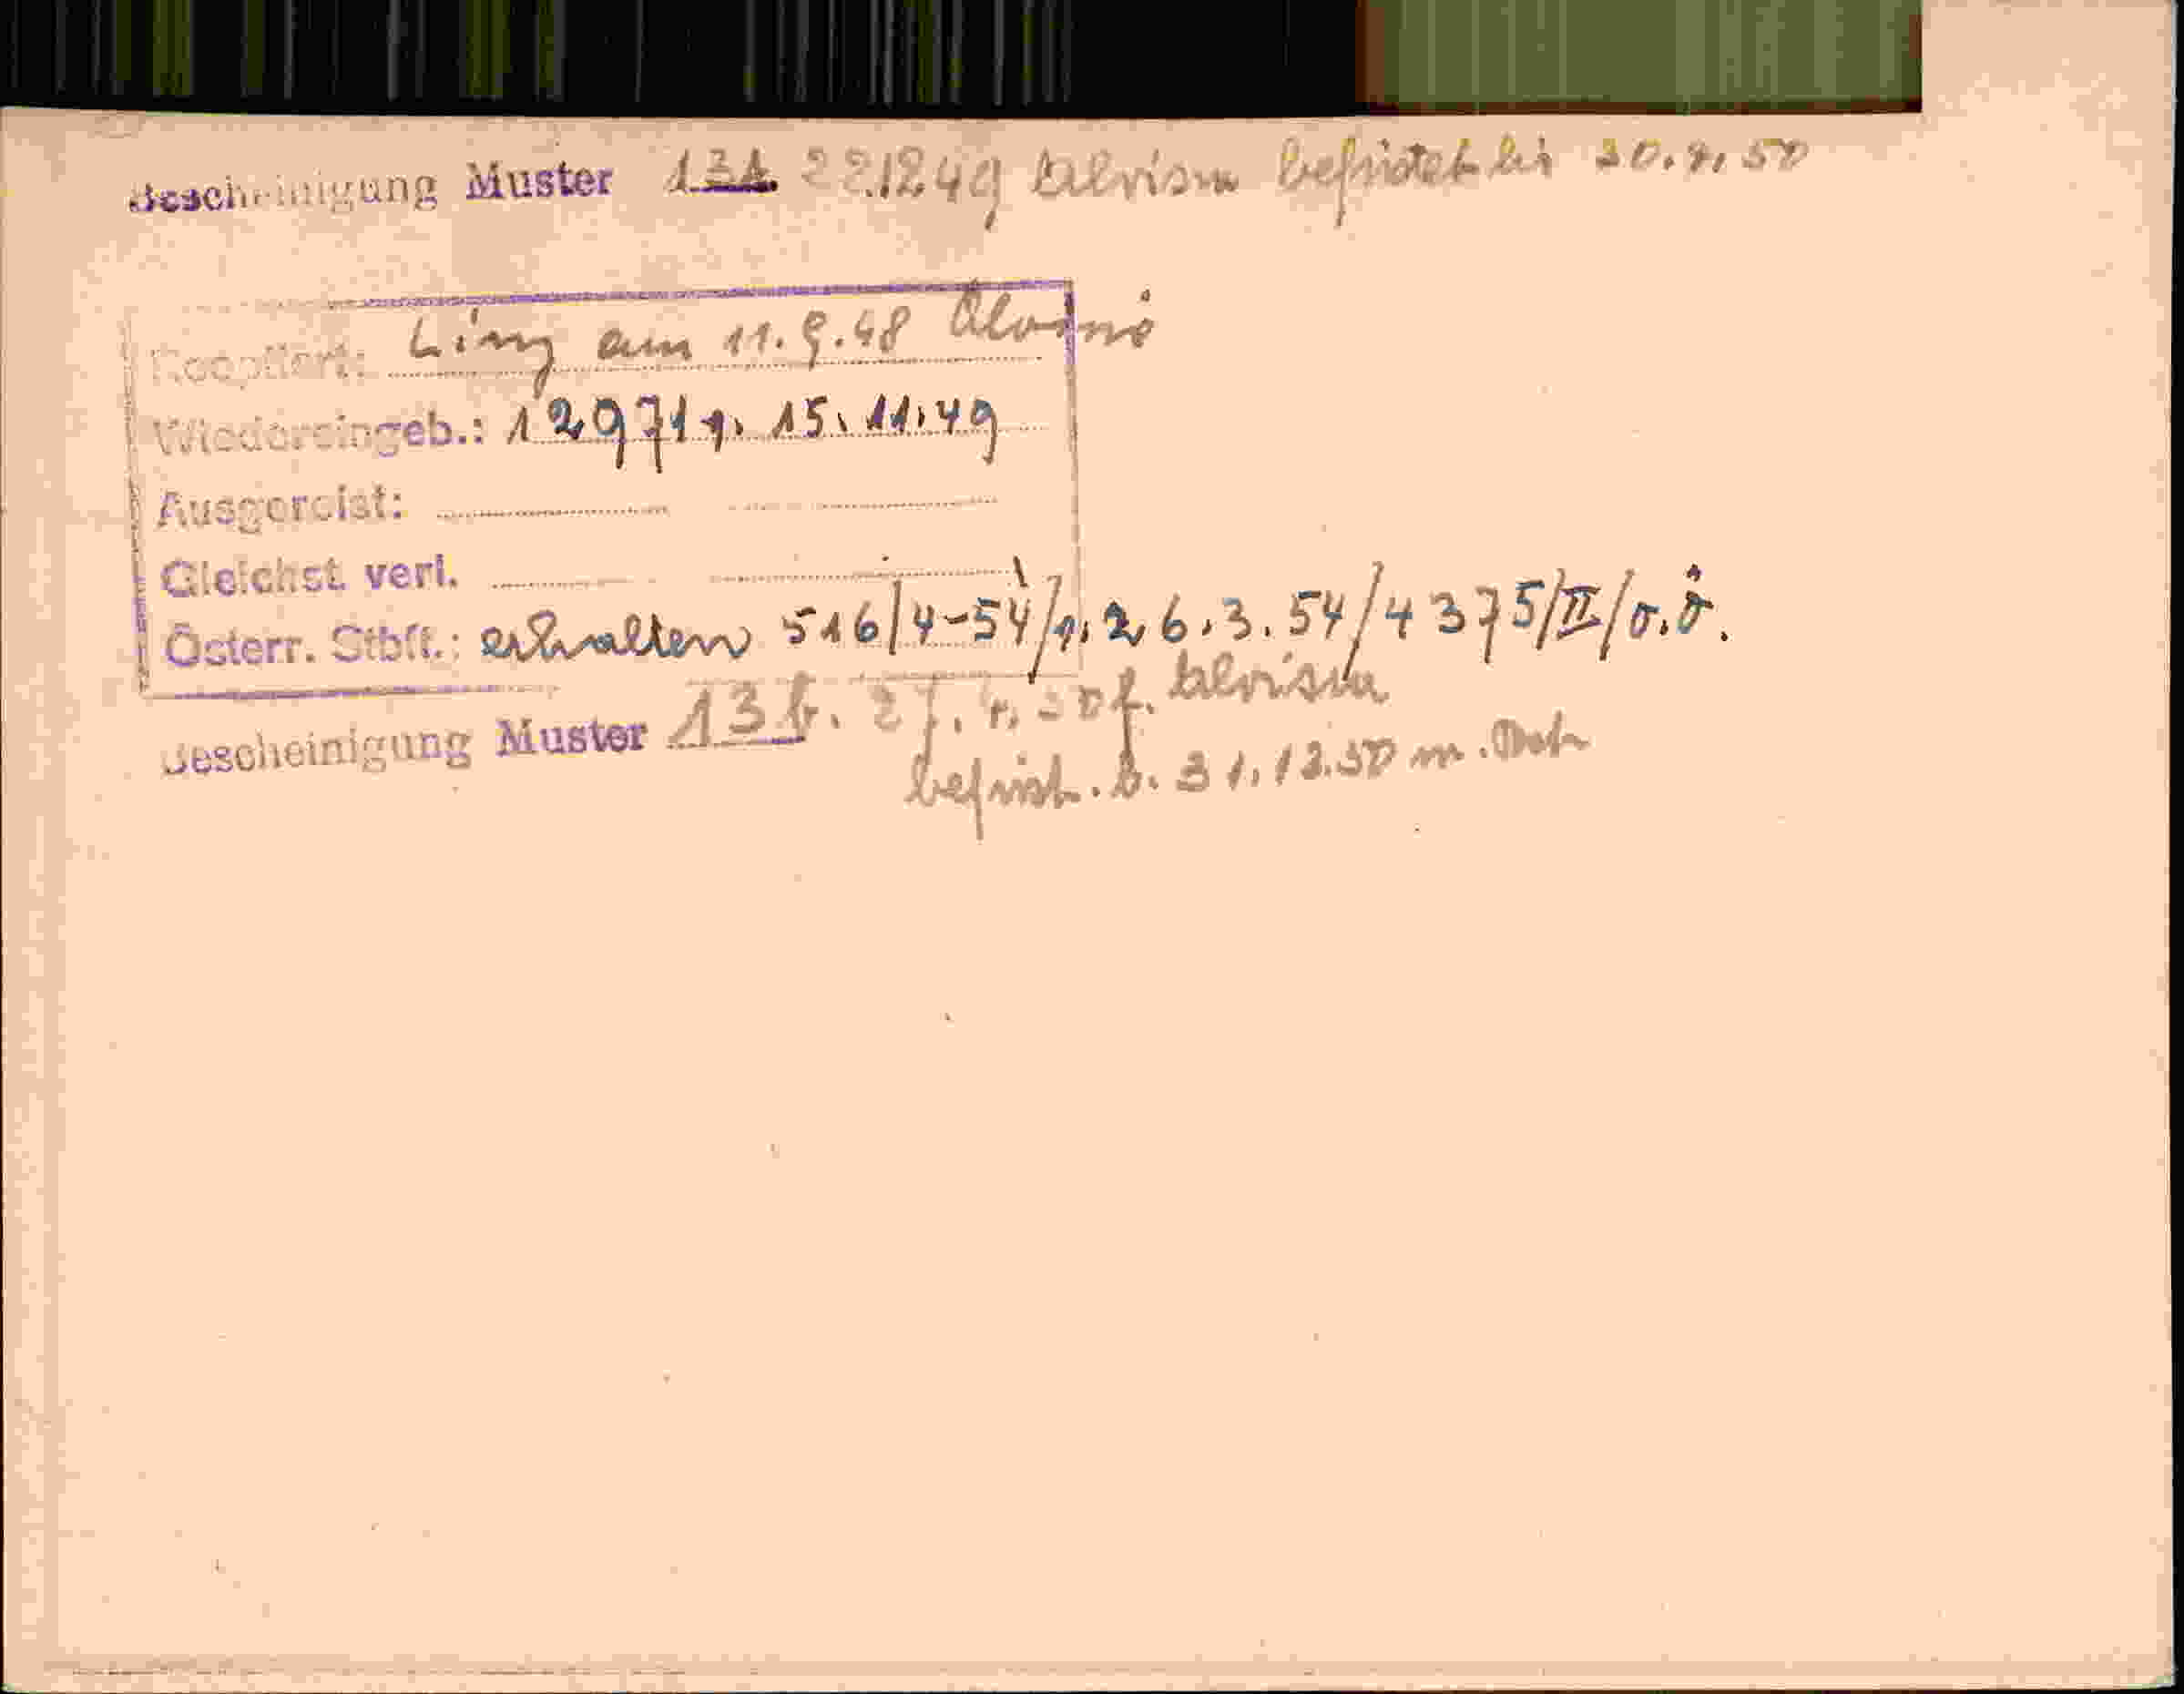 Bescheinigung Muster 13a 22.12.49 befristet bis 30.4.50
Koopfiert: Linz am 11.9.48
Wiedereingeb.: 12971 v. 15.11.49
Ausgereist:
Gleichst. verl.
Österr. Stbft.: erhalten 516/4-54/v. 26.3.54/4375/II/o.ö.
Bescheinigung Muster 13b. 27.4.50
befrist. b. 31.12.50 m.